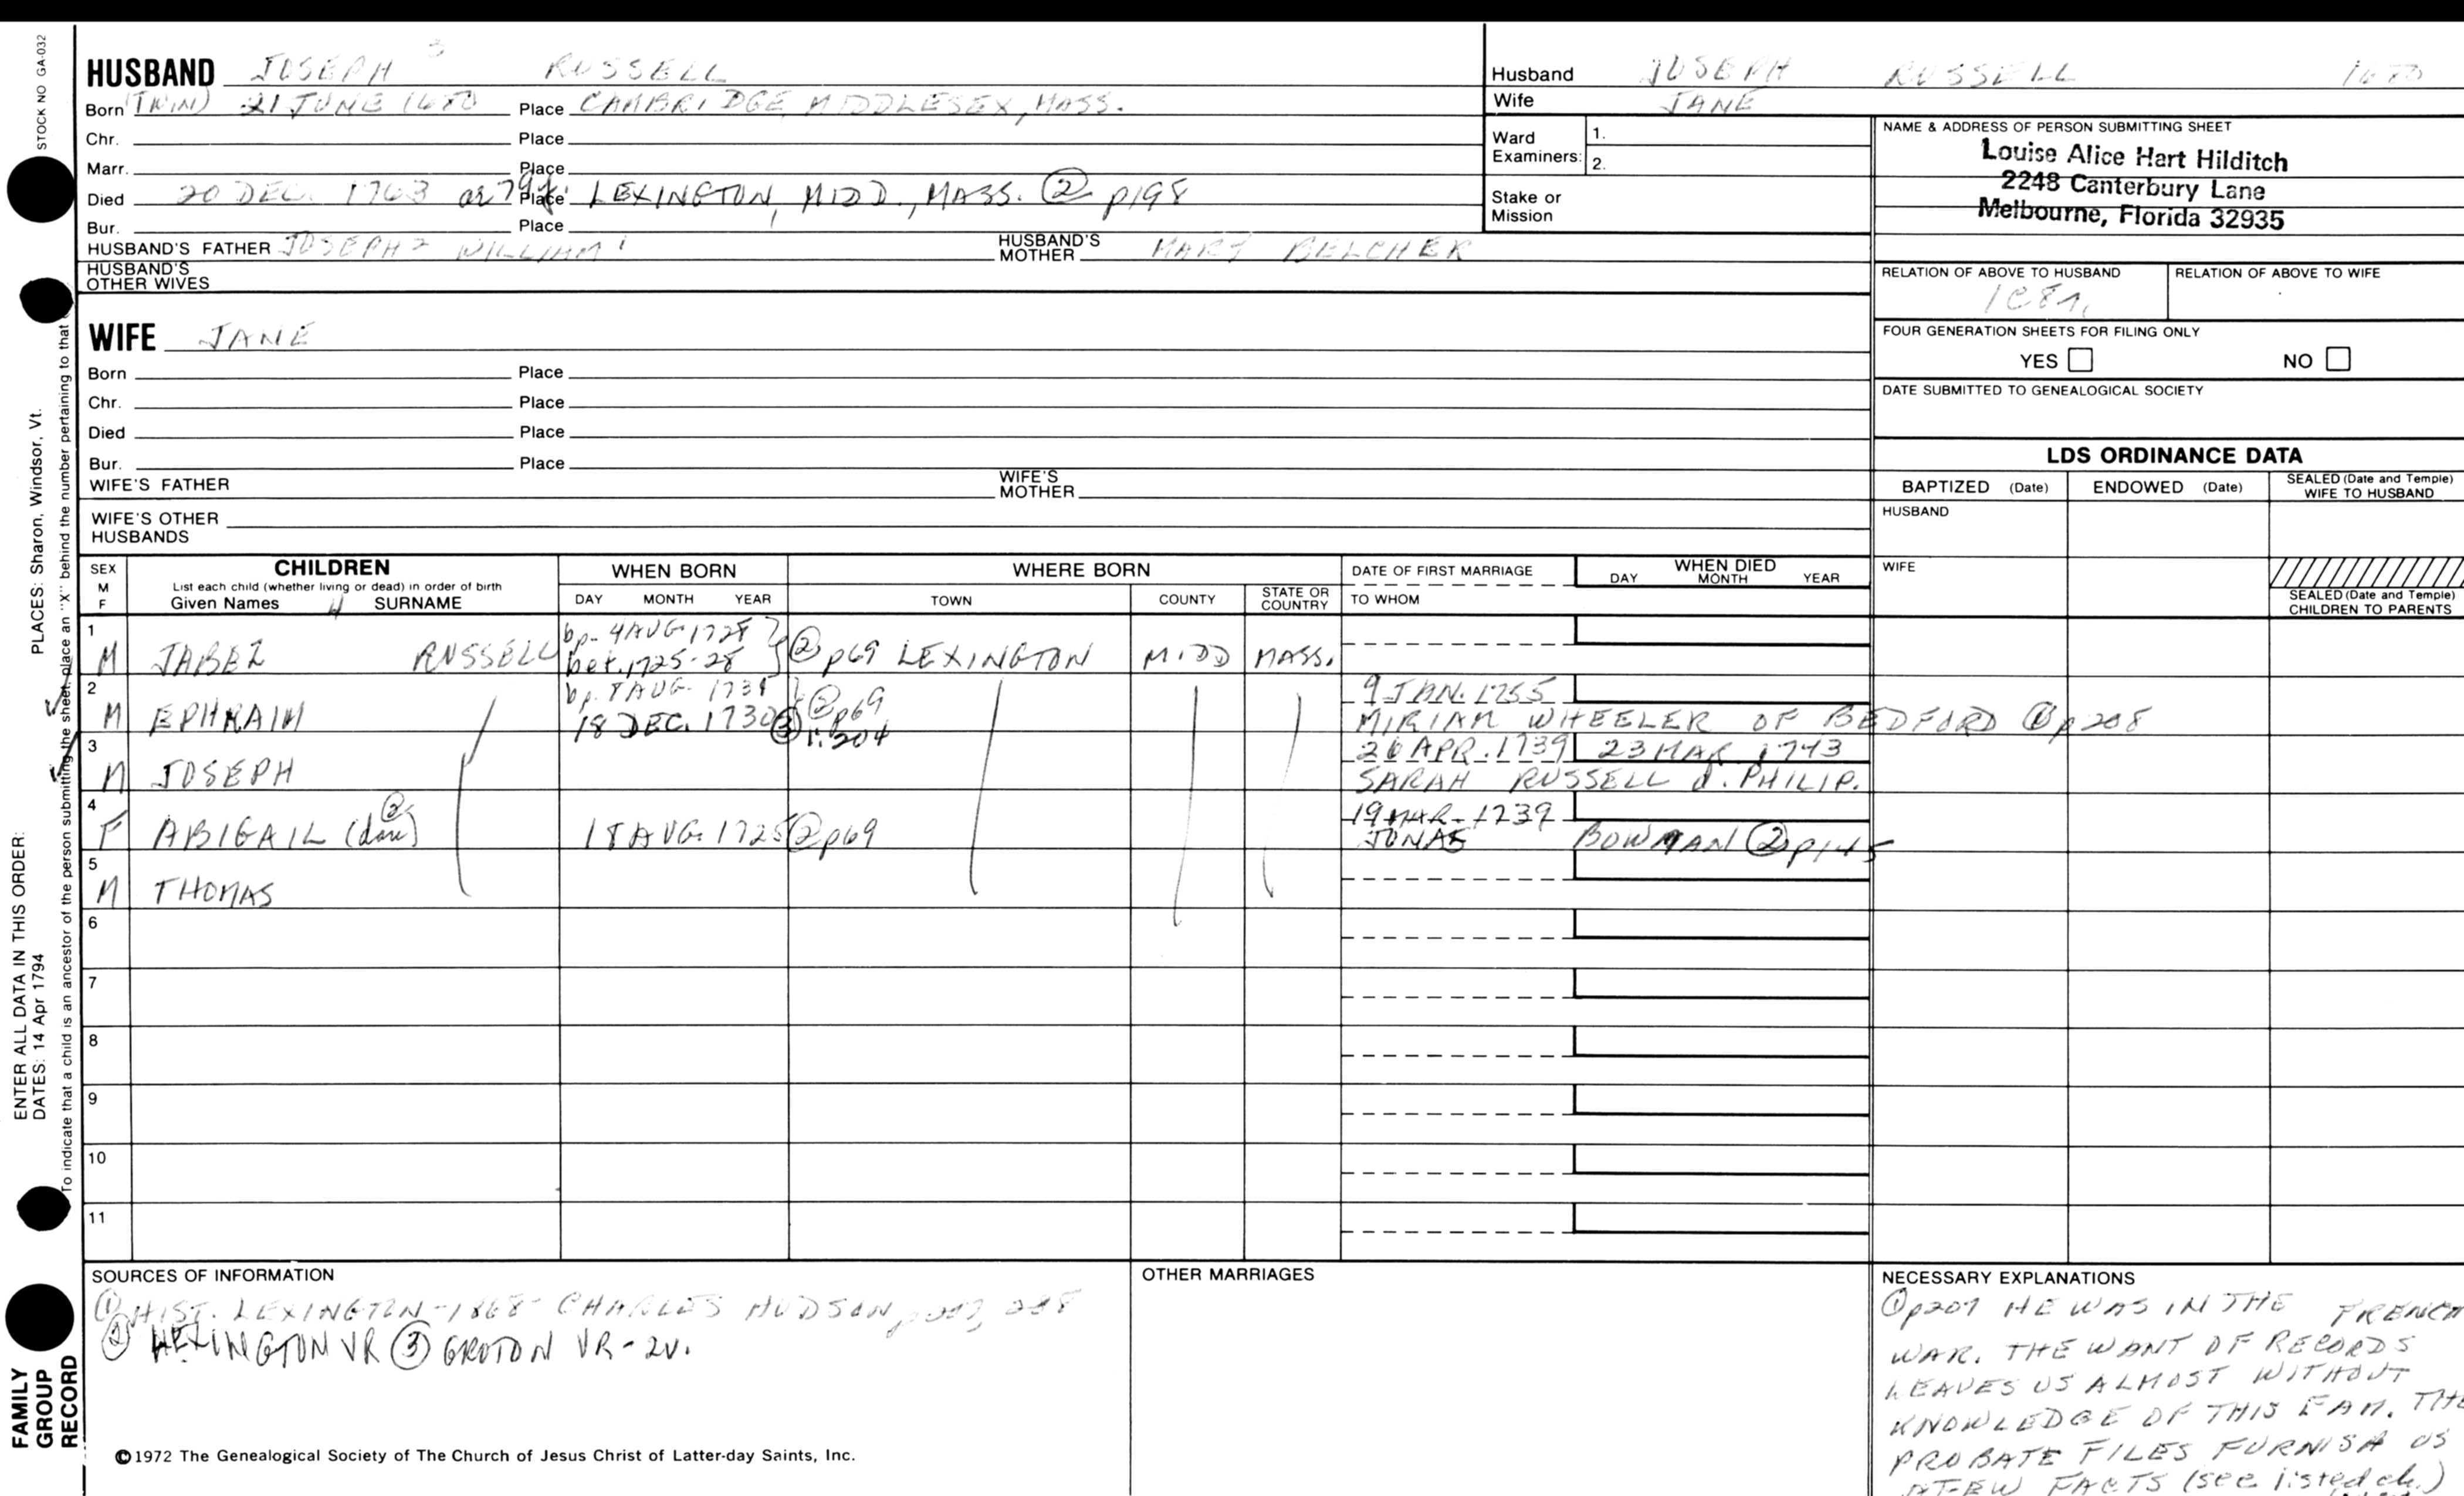 STOCK NO GA-032
HUSBAND JOSEPH 3 RUSSELL
Born (TWIN) 21 JUNE 1680 Place CAMBRIDGE, MIDDLESEX, MASS.
Chr. Place
Marr. Place
Died 20 DEC. 1763 Place LEXINGTON, MIDD., MASS. ② p198
Bur. Place
HUSBAND'S FATHER JOSEPH 2 WILLIAM 1 HUSBAND'S MOTHER MARY BELCHER
HUSBAND'S OTHER WIVES
Husband JOSEPH RUSSELL 1680
Wife JANE
Ward Examiners: 1.
2.
Stake or Mission
NAME & ADDRESS OF PERSON SUBMITTING SHEET
Louise Alice Hart Hilditch
2248 Canterbury Lane
Melbourne, Florida 32935
RELATION OF ABOVE TO HUSBAND RELATION OF ABOVE TO WIFE
FOUR GENERATION SHEETS FOR FILING ONLY
YES NO
DATE SUBMITTED TO GENEALOGICAL SOCIETY
WIFE JANE
Born Place
Chr. Place
Died Place
Bur. Place
WIFE'S FATHER WIFE'S MOTHER
WIFE'S OTHER HUSBANDS
LDS ORDINANCE DATA
BAPTIZED (Date) ENDOWED (Date) SEALED (Date and Temple) WIFE TO HUSBAND
HUSBAND
WIFE
SEALED (Date and Temple) CHILDREN TO PARENTS
SEX M F
CHILDREN
List each child (whether living or dead) in order of birth
Given Names SURNAME
WHEN BORN
DAY MONTH YEAR
WHERE BORN
TOWN COUNTY STATE OR COUNTRY
DATE OF FIRST MARRIAGE
TO WHOM
WHEN DIED
DAY MONTH YEAR
1 bp. 4 AUG. 1728
M JABEZ RUSSELL bet. 1725-28 ② p69 LEXINGTON MIDD MASS.
2 bp. AUG. ② p69 9 JAN. 1755
M EPHRAIM 18 DEC. 1730 ③ 1:204 MIRIAM WHEELER OF BEDFORD ① p 208
3 26 APR. 1739 23 MAR 1743
M JOSEPH SARAH RUSSELL d. PHILIP.
4 ② 19 MAR. 1739
F ABIGAIL (dau) AUG. 1725 ② p69 JONAS BOWMAN ② p145
5
M THOMAS
6
7
8
9
10
11
PLACES: Sharon, Windsor, Vt.
ENTER ALL DATA IN THIS ORDER:
DATES: 14 Apr 1794
To indicate that a child is an ancestor of the person submitting the sheet, place an "X" behind the number pertaining to that
FAMILY GROUP RECORD
SOURCES OF INFORMATION
① HIST. LEXINGTON-1868- CHARLES HUDSON,
② LEXINGTON VR ③ GROTON VR-2V.
OTHER MARRIAGES
NECESSARY EXPLANATIONS
① p207 HE WAS IN THE FRENCH
WAR. THE WANT OF RECORDS
LEAVES US ALMOST WITHOUT
KNOWLEDGE OF THIS FAM. THE
PROBATE FILES FURNISH US
A FEW FACTS (see listed ch.)
©1972 The Genealogical Society of The Church of Jesus Christ of Latter-day Saints, Inc.